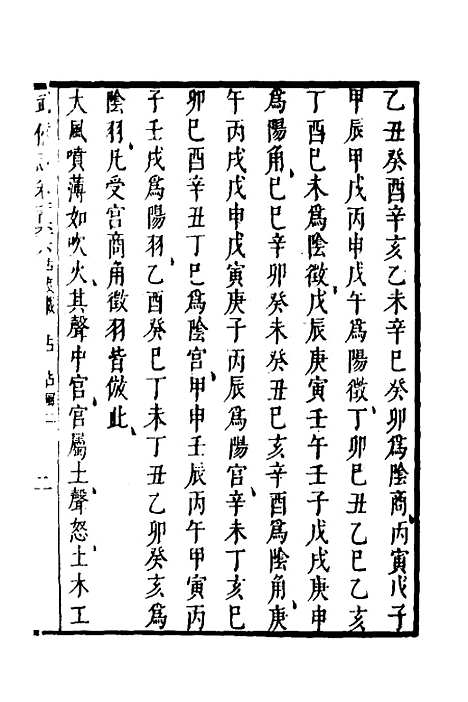 乙丑癸酉辛亥乙未辛巳癸卯爲陰商丙寅戊子
甲辰甲戌丙申戊午爲陽徵丁卯己丑乙巳乙亥
丁酉己未爲陰徵戊辰庚寅壬午壬子戊戌庚申
爲陽角己巳辛卯癸未癸丑己亥辛酉爲陰角庚
午丙戌戊申戊寅庚子丙辰爲陽宮辛未丁亥己
卯己酉辛丑丁巳爲陰宮甲申壬辰丙午甲寅丙
子壬戌爲陽羽乙酉癸巳丁未丁丑乙卯癸亥爲
陰羽凡受宮商角徵羽皆倣此
大風噴薄如吹火其聲中宮宮屬土聲怒土木工
武備志卷 占度載 占 占風二 二